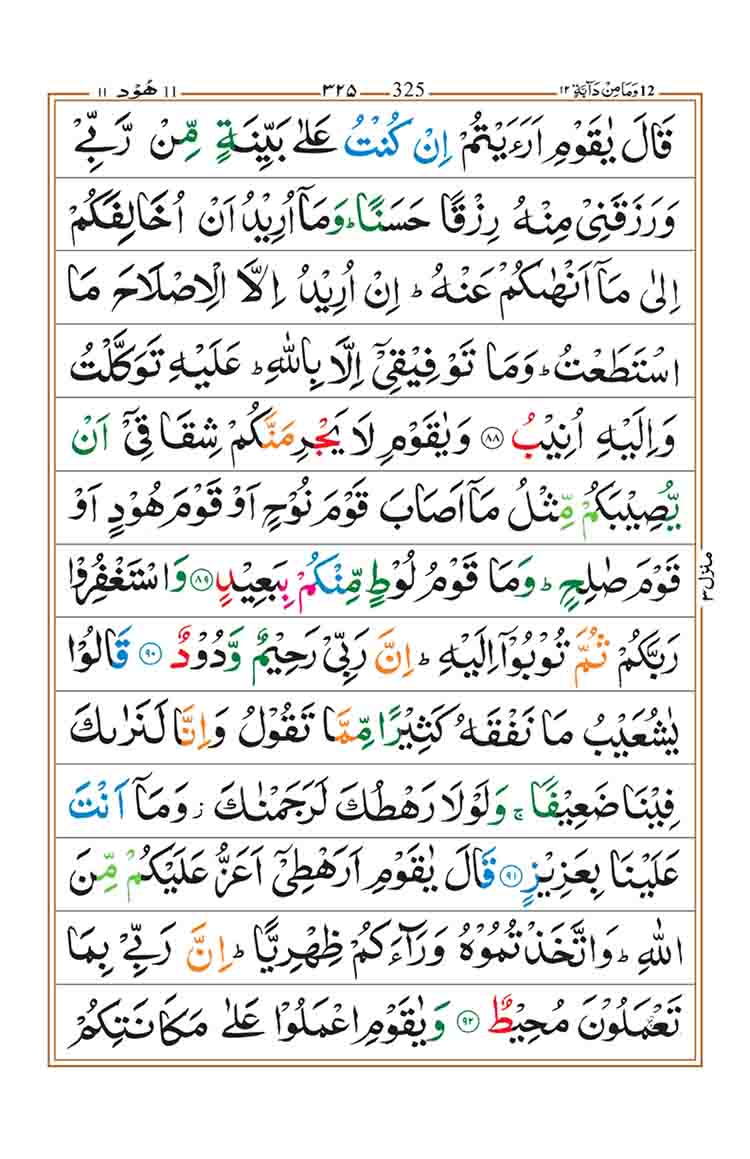 12 وَمَا مِنْ دَآبَّةٍ ١٢ 325 ٣٢٥ 11 هُوْد ١١
قَالَ يٰقَوْمِ اَرَءَيْتُمْ اِنْ كُنْتُ عَلٰى بَيِّنَةٍ مِّنْ رَّبِّيْ
وَرَزَقَنِيْ مِنْهُ رِزْقًا حَسَنًا ؕ وَمَاۤ اُرِيْدُ اَنْ اُخَالِفَكُمْ
اِلٰى مَاۤ اَنْهٰىكُمْ عَنْهُ ؕ اِنْ اُرِيْدُ اِلَّا الْاِصْلَاحَ مَا
اسْتَطَعْتُ ؕ وَمَا تَوْفِيْقِيْۤ اِلَّا بِاللّٰهِ ؕ عَلَيْهِ تَوَكَّلْتُ
وَاِلَيْهِ اُنِيْبُ ۝٨٨ وَيٰقَوْمِ لَا يَجْرِمَنَّكُمْ شِقَاقِيْۤ اَنْ
يُّصِيْبَكُمْ مِّثْلُ مَاۤ اَصَابَ قَوْمَ نُوْحٍ اَوْ قَوْمَ هُوْدٍ اَوْ
قَوْمَ صٰلِحٍ ؕ وَمَا قَوْمُ لُوْطٍ مِّنْكُمْ بِبَعِيْدٍ ۝٨٩ وَاسْتَغْفِرُوْا
رَبَّكُمْ ثُمَّ تُوْبُوْۤا اِلَيْهِ ؕ اِنَّ رَبِّيْ رَحِيْمٌ وَّدُوْدٌ ۝٩٠ قَالُوْا
يٰشُعَيْبُ مَا نَفْقَهُ كَثِيْرًا مِّمَّا تَقُوْلُ وَاِنَّا لَنَرٰىكَ
فِيْنَا ضَعِيْفًا ۚ وَلَوْلَا رَهْطُكَ لَرَجَمْنٰكَ ؗ وَمَاۤ اَنْتَ
عَلَيْنَا بِعَزِيْزٍ ۝٩١ قَالَ يٰقَوْمِ اَرَهْطِيْۤ اَعَزُّ عَلَيْكُمْ مِّنَ
اللّٰهِ ؕ وَاتَّخَذْتُمُوْهُ وَرَآءَكُمْ ظِهْرِيًّا ؕ اِنَّ رَبِّيْ بِمَا
تَعْمَلُوْنَ مُحِيْطٌ ۝٩٢ وَيٰقَوْمِ اعْمَلُوْا عَلٰى مَكَانَتِكُمْ
منزل ٣